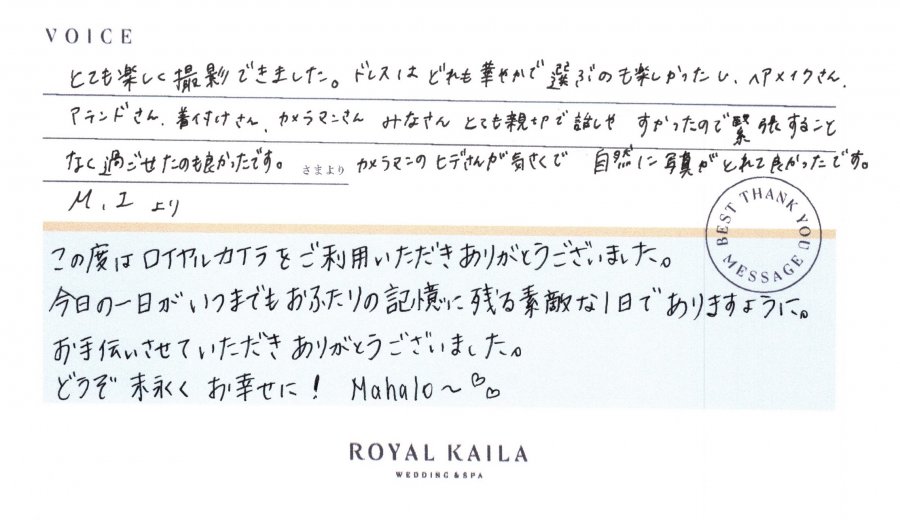 VOICE
とても楽しく撮影できました。ドレスはどれも華やかで選ぶのも楽しかったし、ヘアメイクさん、
アテンドさん、着付けさん、カメラマンさん みなさん とても親切で話しや すかったので緊張すること
なく過ごせたのも良かったです。 さまより カメラマンのヒデさんが気さくで 自然に写真がとれて良かったです。
M.I より
BEST THANK YOU MESSAGE
この度はロイヤルカイラをご利用いただきありがとうございました。
今日の一日がいつまでもおふたりの記憶に残る素敵な1日でありますように。
お手伝いさせていただきありがとうございました。
どうぞ末永くお幸せに! Mahalo~♡♡
ROYAL KAILA
WEDDING & SPA